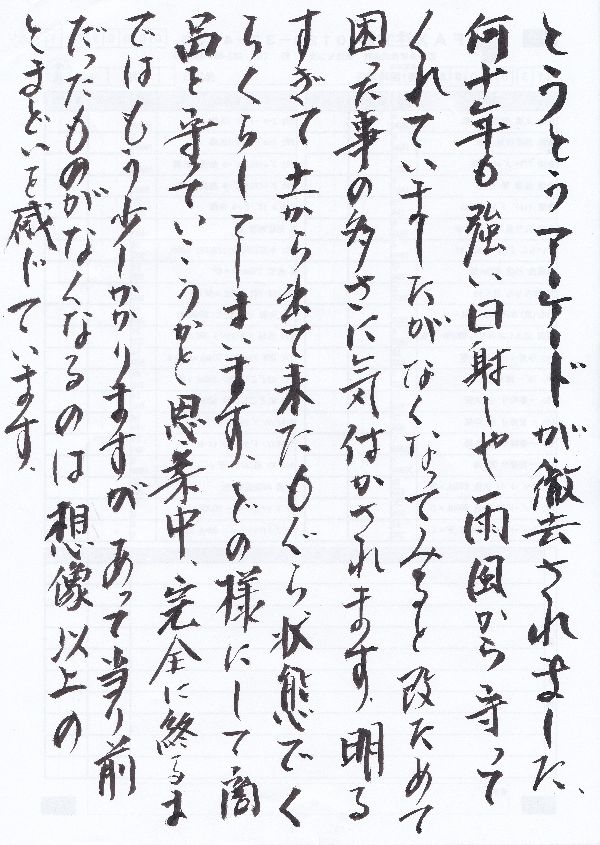 とうとうアーケードが徹去されました、
何十年も強い日射しや雨風から守って
くれていましたがなくなってみると改ためて
困った事の多さに気付かされます、明る
すぎて土から出て来たもぐら状態でく
らくらしてしまいます、どの様にして商
品を守ていこうかと思案中、完全に終るま
ではもう少しかかりますが あって当り前
だったものがなくなるのは想像以上の
とまどいを感じています、